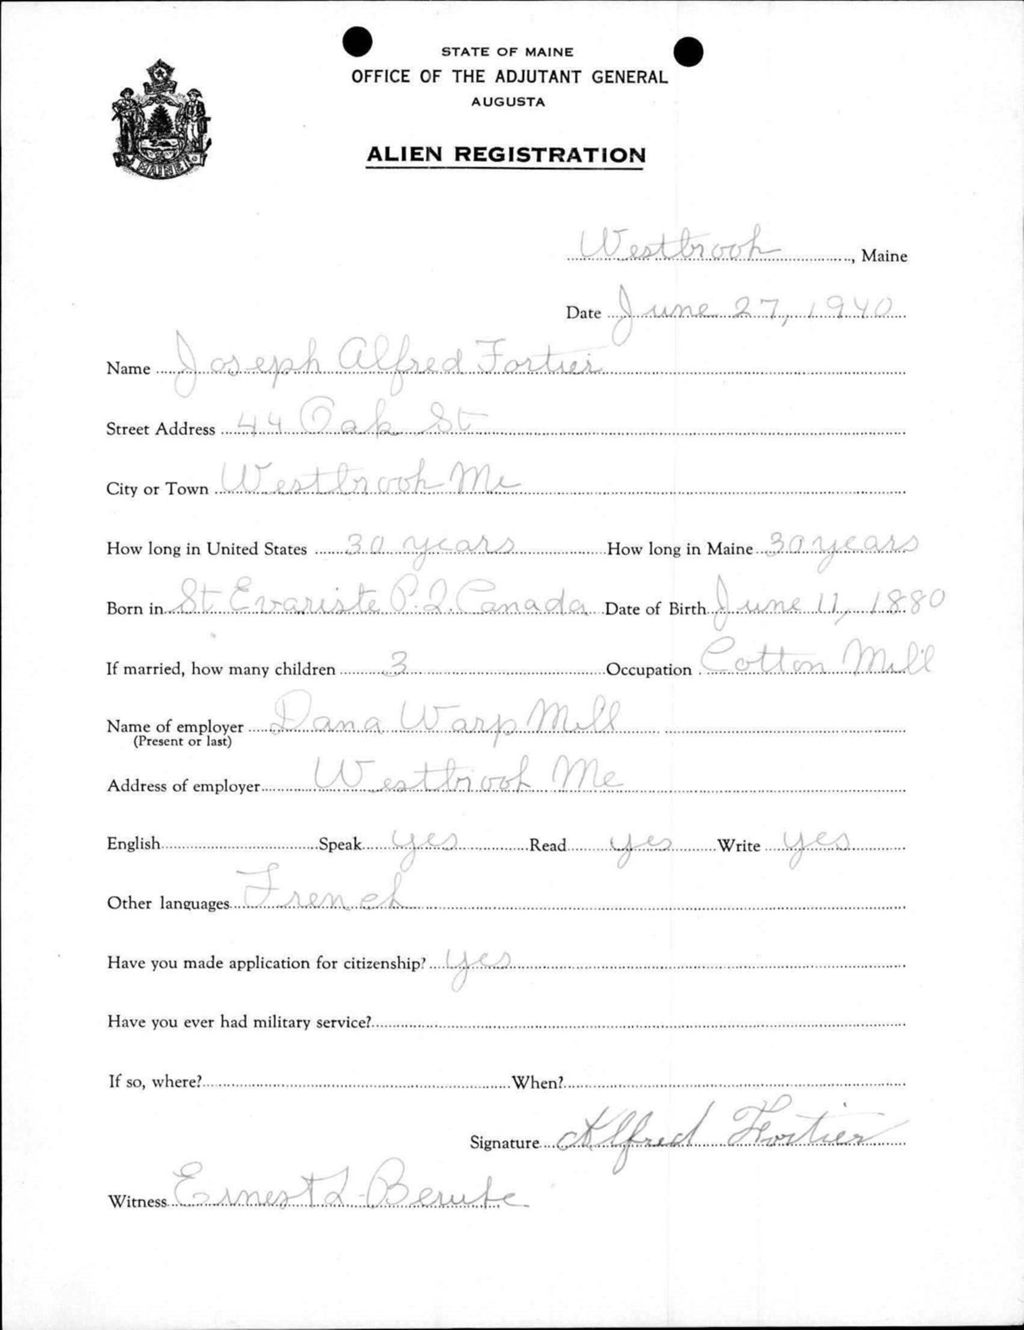 STATE OF MAINE
OFFICE OF THE ADJUTANT GENERAL
AUGUSTA
ALIEN REGISTRATION
MAINE
Westbrook, Maine
Date June 27, 1940
Name Joseph Alfred Fortier
Street Address 44 Oak St
City or Town Westbrook Me
How long in United States 30 years How long in Maine 30 years
Born in St. Evariste P.Q. Canada Date of Birth June 11, 1880
If married, how many children 3 Occupation Cotton Mill
Name of employer Dana Warp Mill
(Present or last)
Address of employer Westbrook Me
English Speak yes Read yes Write yes
Other languages French
Have you made application for citizenship? yes
Have you ever had military service?
If so, where? When?
Signature Alfred Fortier
Witness Ernest L. Berube